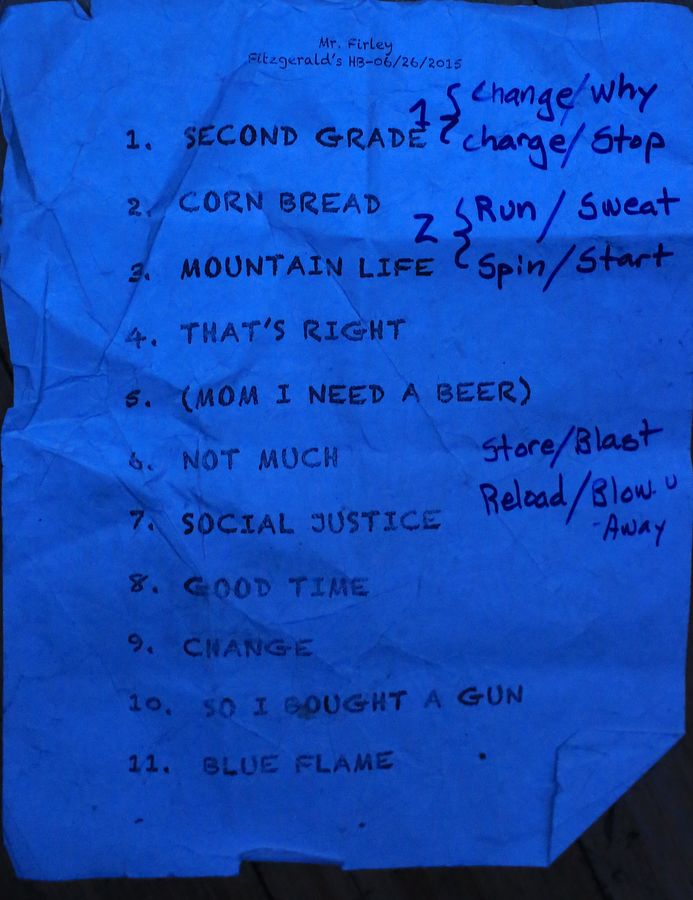 Mr. Firley
Fitzgerald's HB-06/26/2015
1. SECOND GRADE
2. CORN BREAD
3. MOUNTAIN LIFE
4. THAT'S RIGHT
5. (MOM I NEED A BEER)
6. NOT MUCH
7. SOCIAL JUSTICE
8. GOOD TIME
9. CHANGE
10. SO I BOUGHT A GUN
11. BLUE FLAME
1 { Change/Why
change/Stop
2 { Run/Sweat
Spin/Start
Store/Blast
Reload/Blow-U
-Away